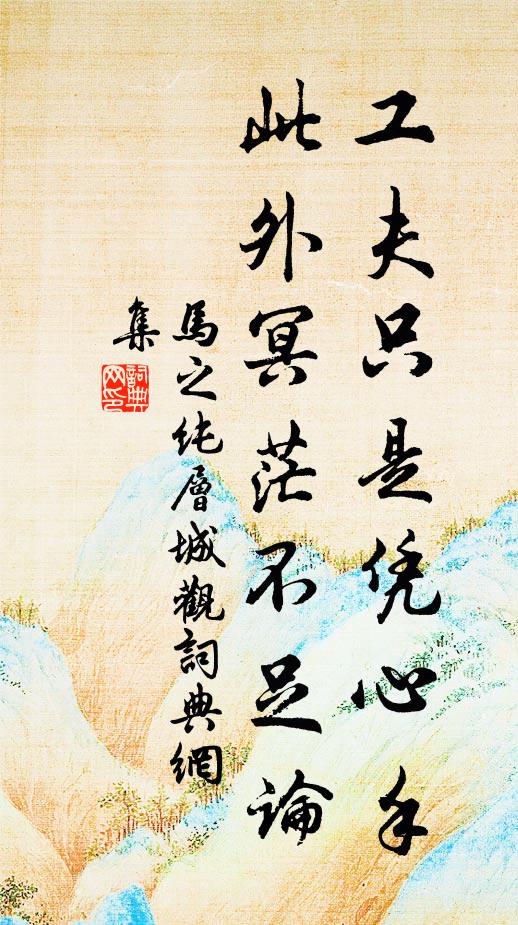 工夫只是凭心手
此外冥茫不足論
馬之纯層城觀詞典網
集
詞典网印